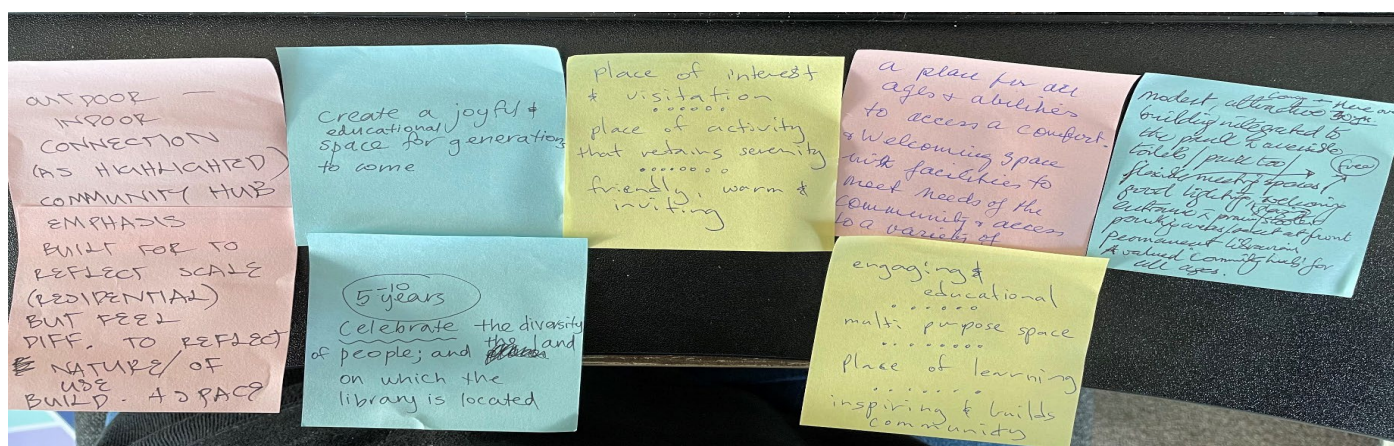 OUTDOOR —
INDOOR
CONNECTION
(AS HIGHLIGHTED)
COMMUNITY HUB
EMPHASIS
BUILT FOR TO
REFLECT SCALE
(RESIDENTIAL)
BUT FEEL
DIFF. TO REFLECT
NATURE/ OF
USE
BUILD. + SPACE
Create a joyful &
educational
space for generations
to come
5-10 years
Celebrate the diversity
of people; and the land
on which the
library is located
place of interest
& visitation
place of activity
that retains serenity
friendly, warm &
inviting
a place for all
ages & abilities
to access a comfort.
& Welcoming space
with facilities to
meet needs of the
community & access
to a variety of
engaging &
educational
multi purpose space
place of learning
inspiring & builds
community
modest, attractive
building integrated to
the park & accessible
toilets / park too /
flexible meeting spaces,
good lighting
parking areas / at front
permanent librarian
A valued community hub for
all ages.